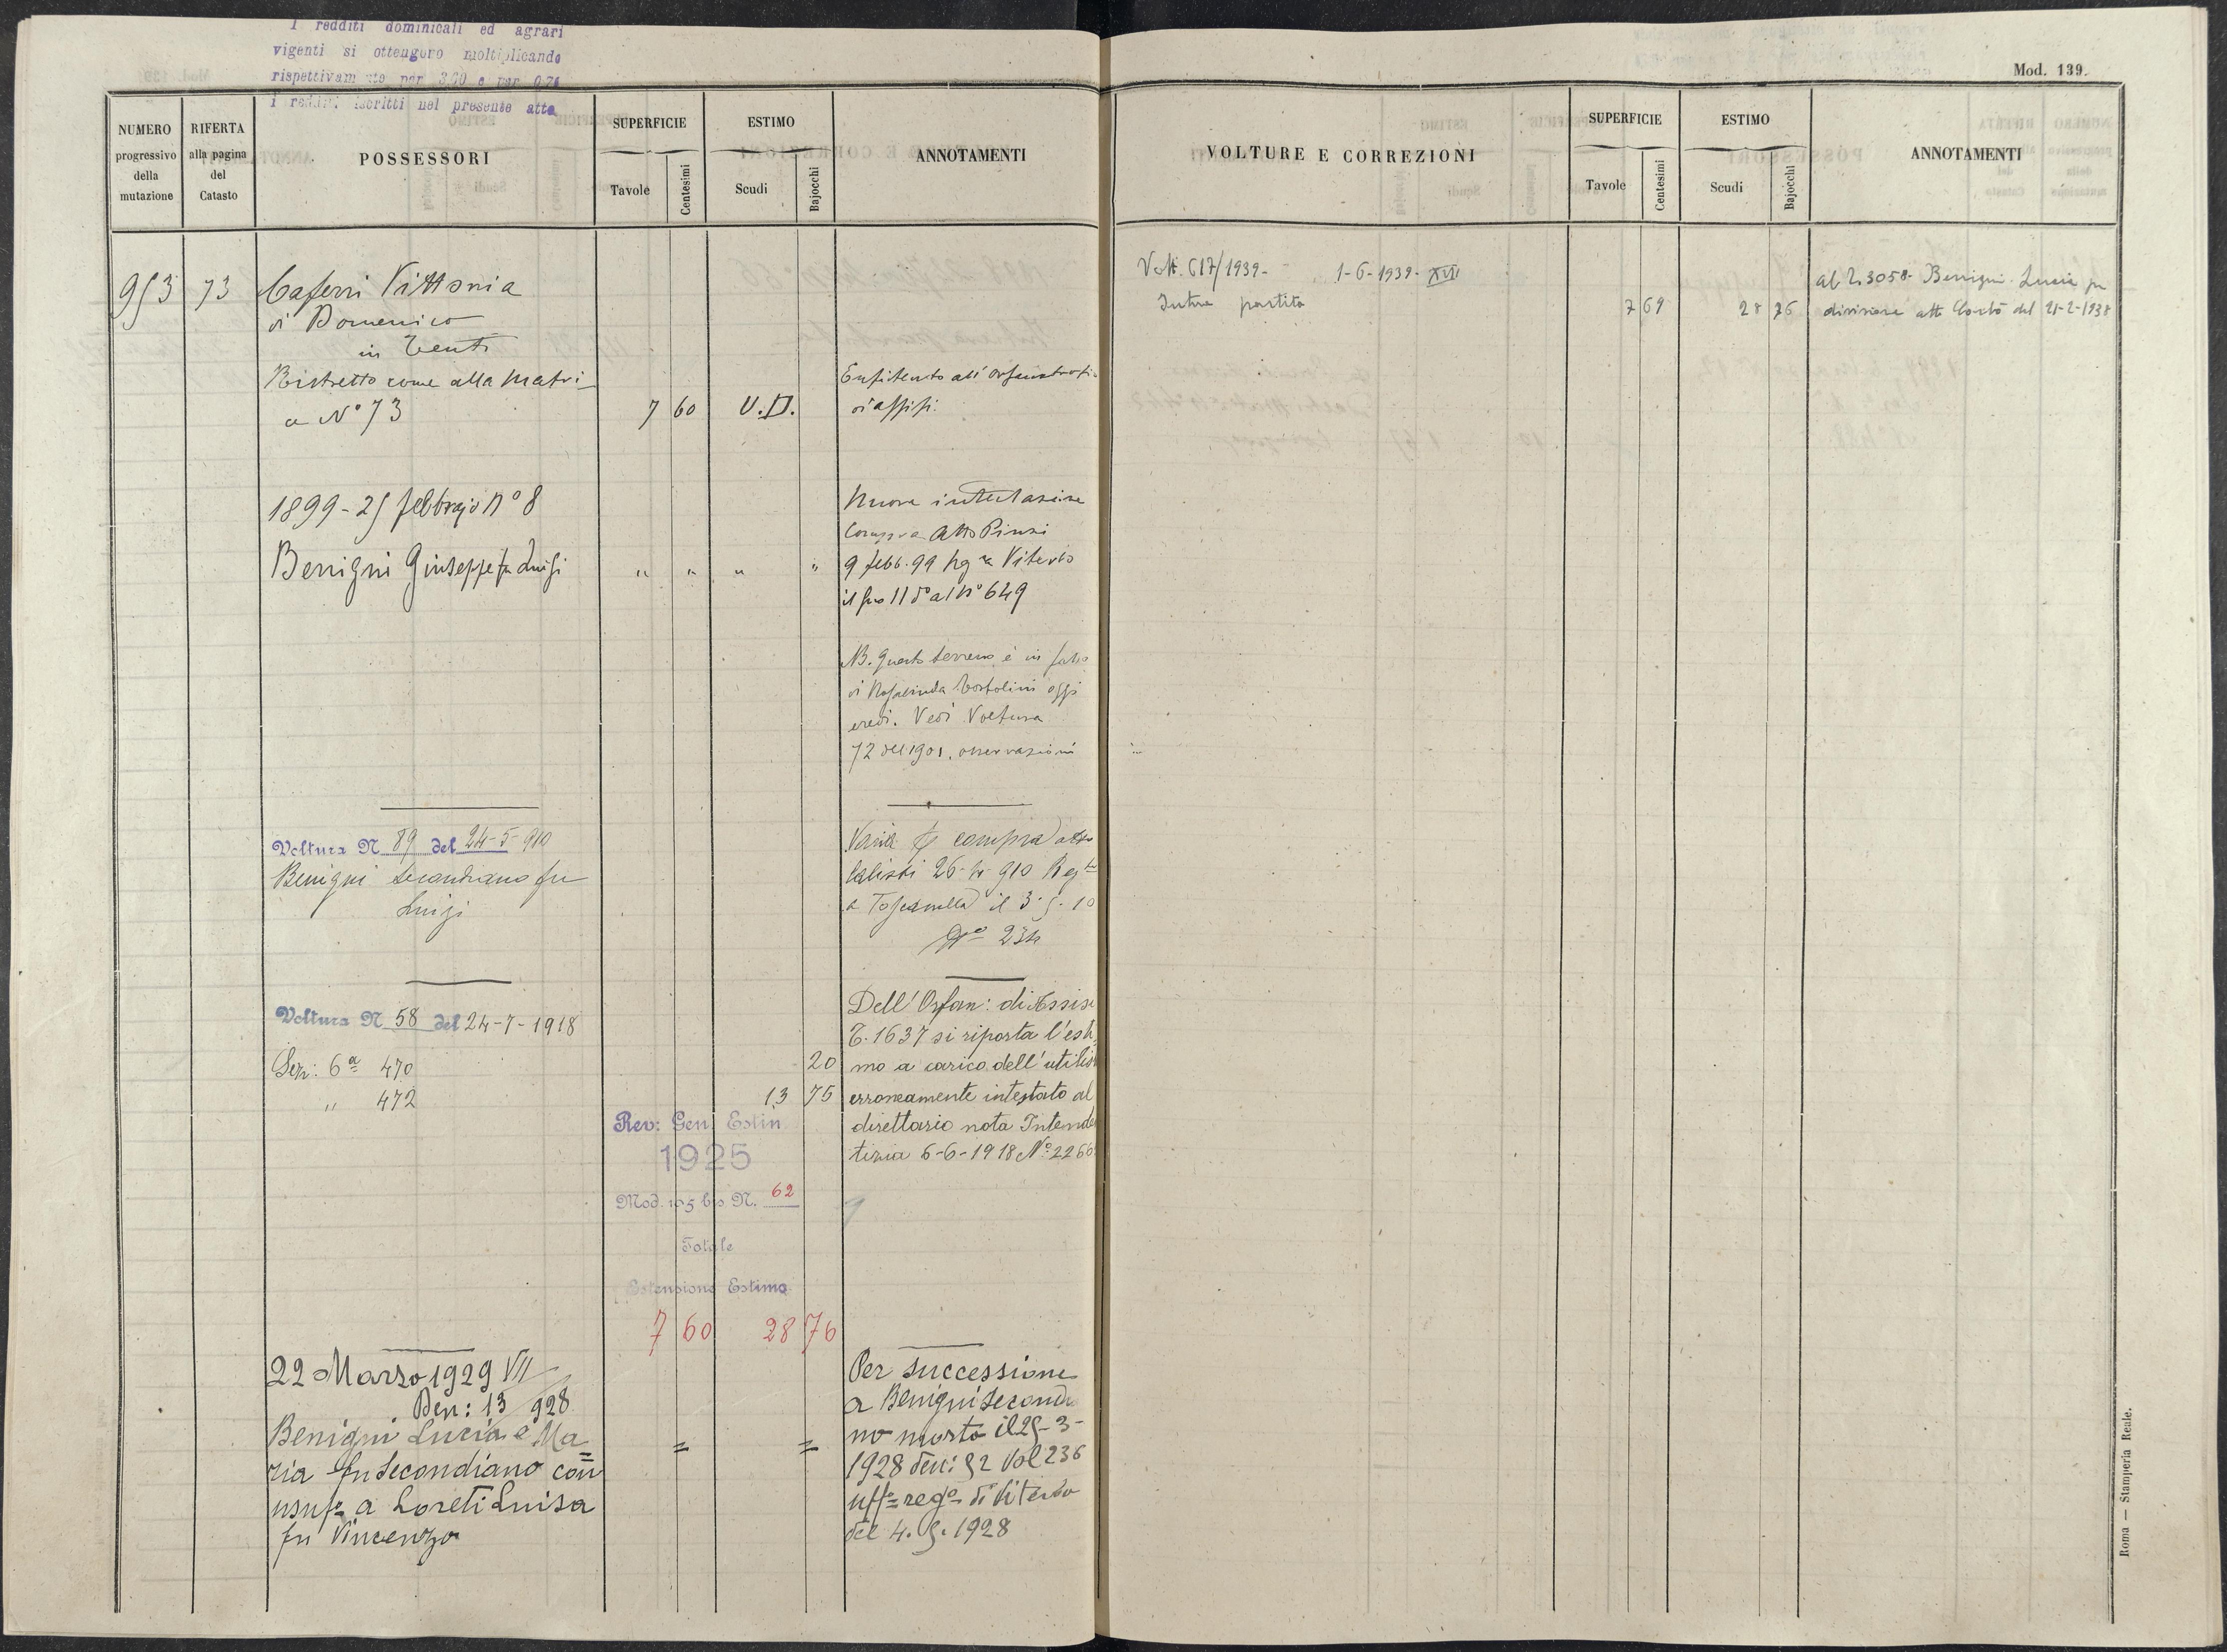 I redditi dominicali ed agrari
vigenti si ottengoro moltiplicando
rispettivam nte per 3.00 e per 0,74
i redditi iscritti nel presente atto
NUMERO
progressivo
della
mutazione
RIFERTA
alla pagina
del
Catasto
POSSESSORI
SUPERFICIE
Tavole
Centesimi
ESTIMO
Scudi
Bajocchi
ANNOTAMENTI
953
73
Caferri Vittoria
di Domenico
in Tenti
Ristretto come alla Matri-
a N° 73
7 60 U.D.
Enfiteuta all'
di Assisi.
1899 - 25 febbrajo N° 8
Benigni Giuseppe fu Luigi
" " " "
Nuova intestazione
Compra Atto Pinzi
9 febb. 99 Viterbo
il 11 do al N° 649
NB. Questo terreno è in
di Tortolini oggi
eredi. Vedi Voltura
72 del 1901, osservazioni
Voltura N 89 del 24-5-910
Benigni Secondiano fu
Luigi
compra atto
Calisti 26-4-910 Reg
a Toscanella il 3.5.10
N° 234
Voltura N 58 del 24-7-1918
Sez: 6ª 470
" 472
20
13 75
Dell'Orfan: di Assisi
T. 1637 si riporta l'esti=
mo a carico dell'utilis
erroneamente intestato al
direttario nota Intende
tizia 6-6-1918 N° 2266
Rev: Gen. Estim
1925
Mod. 105 bis N. 62
Totale
Estensione Estimo
7 60 28 76
22 Marzo 1929 VII
Den: 13 928
Benigni Lucia e Ma=
ria fu Secondiano con
usuf= a Loreti Luisa
fu Vincenzo
= =
Per successione
a Benigni Secondia
no morto il 25-3-
1928 den: 52 Vol 236
uff= reg= di Viterbo
del 4.5.1928
Mod. 139.
VOLTURE E CORREZIONI
SUPERFICIE
Tavole
Centesimi
ESTIMO
Scudi
Bajocchi
ANNOTAMENTI
Volt. 617/1939- 1-6-1939-XVII
Intera partita
7 69 28 76
al 3058 Benigni Lucia per
divisione atto del 21-2-1938
Roma — Stamperia Reale.